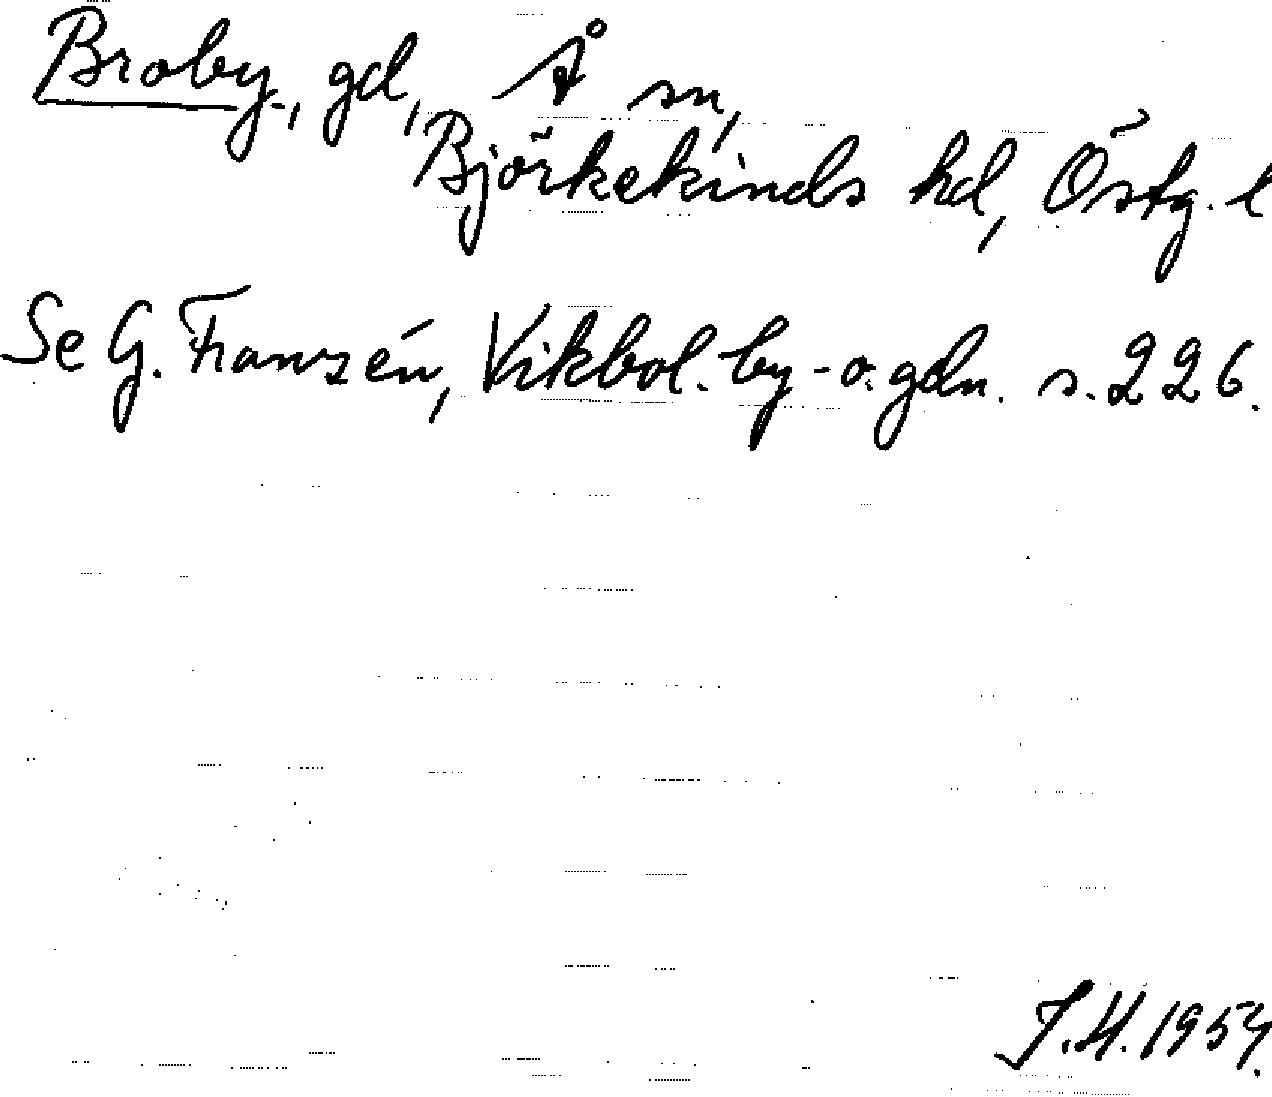 Broby, gd, Å sn,
Björkekinds hd, Östg. l
Se G. Franzén, Vikbol. by- o. gdn. s. 226.
J.H. 1954.